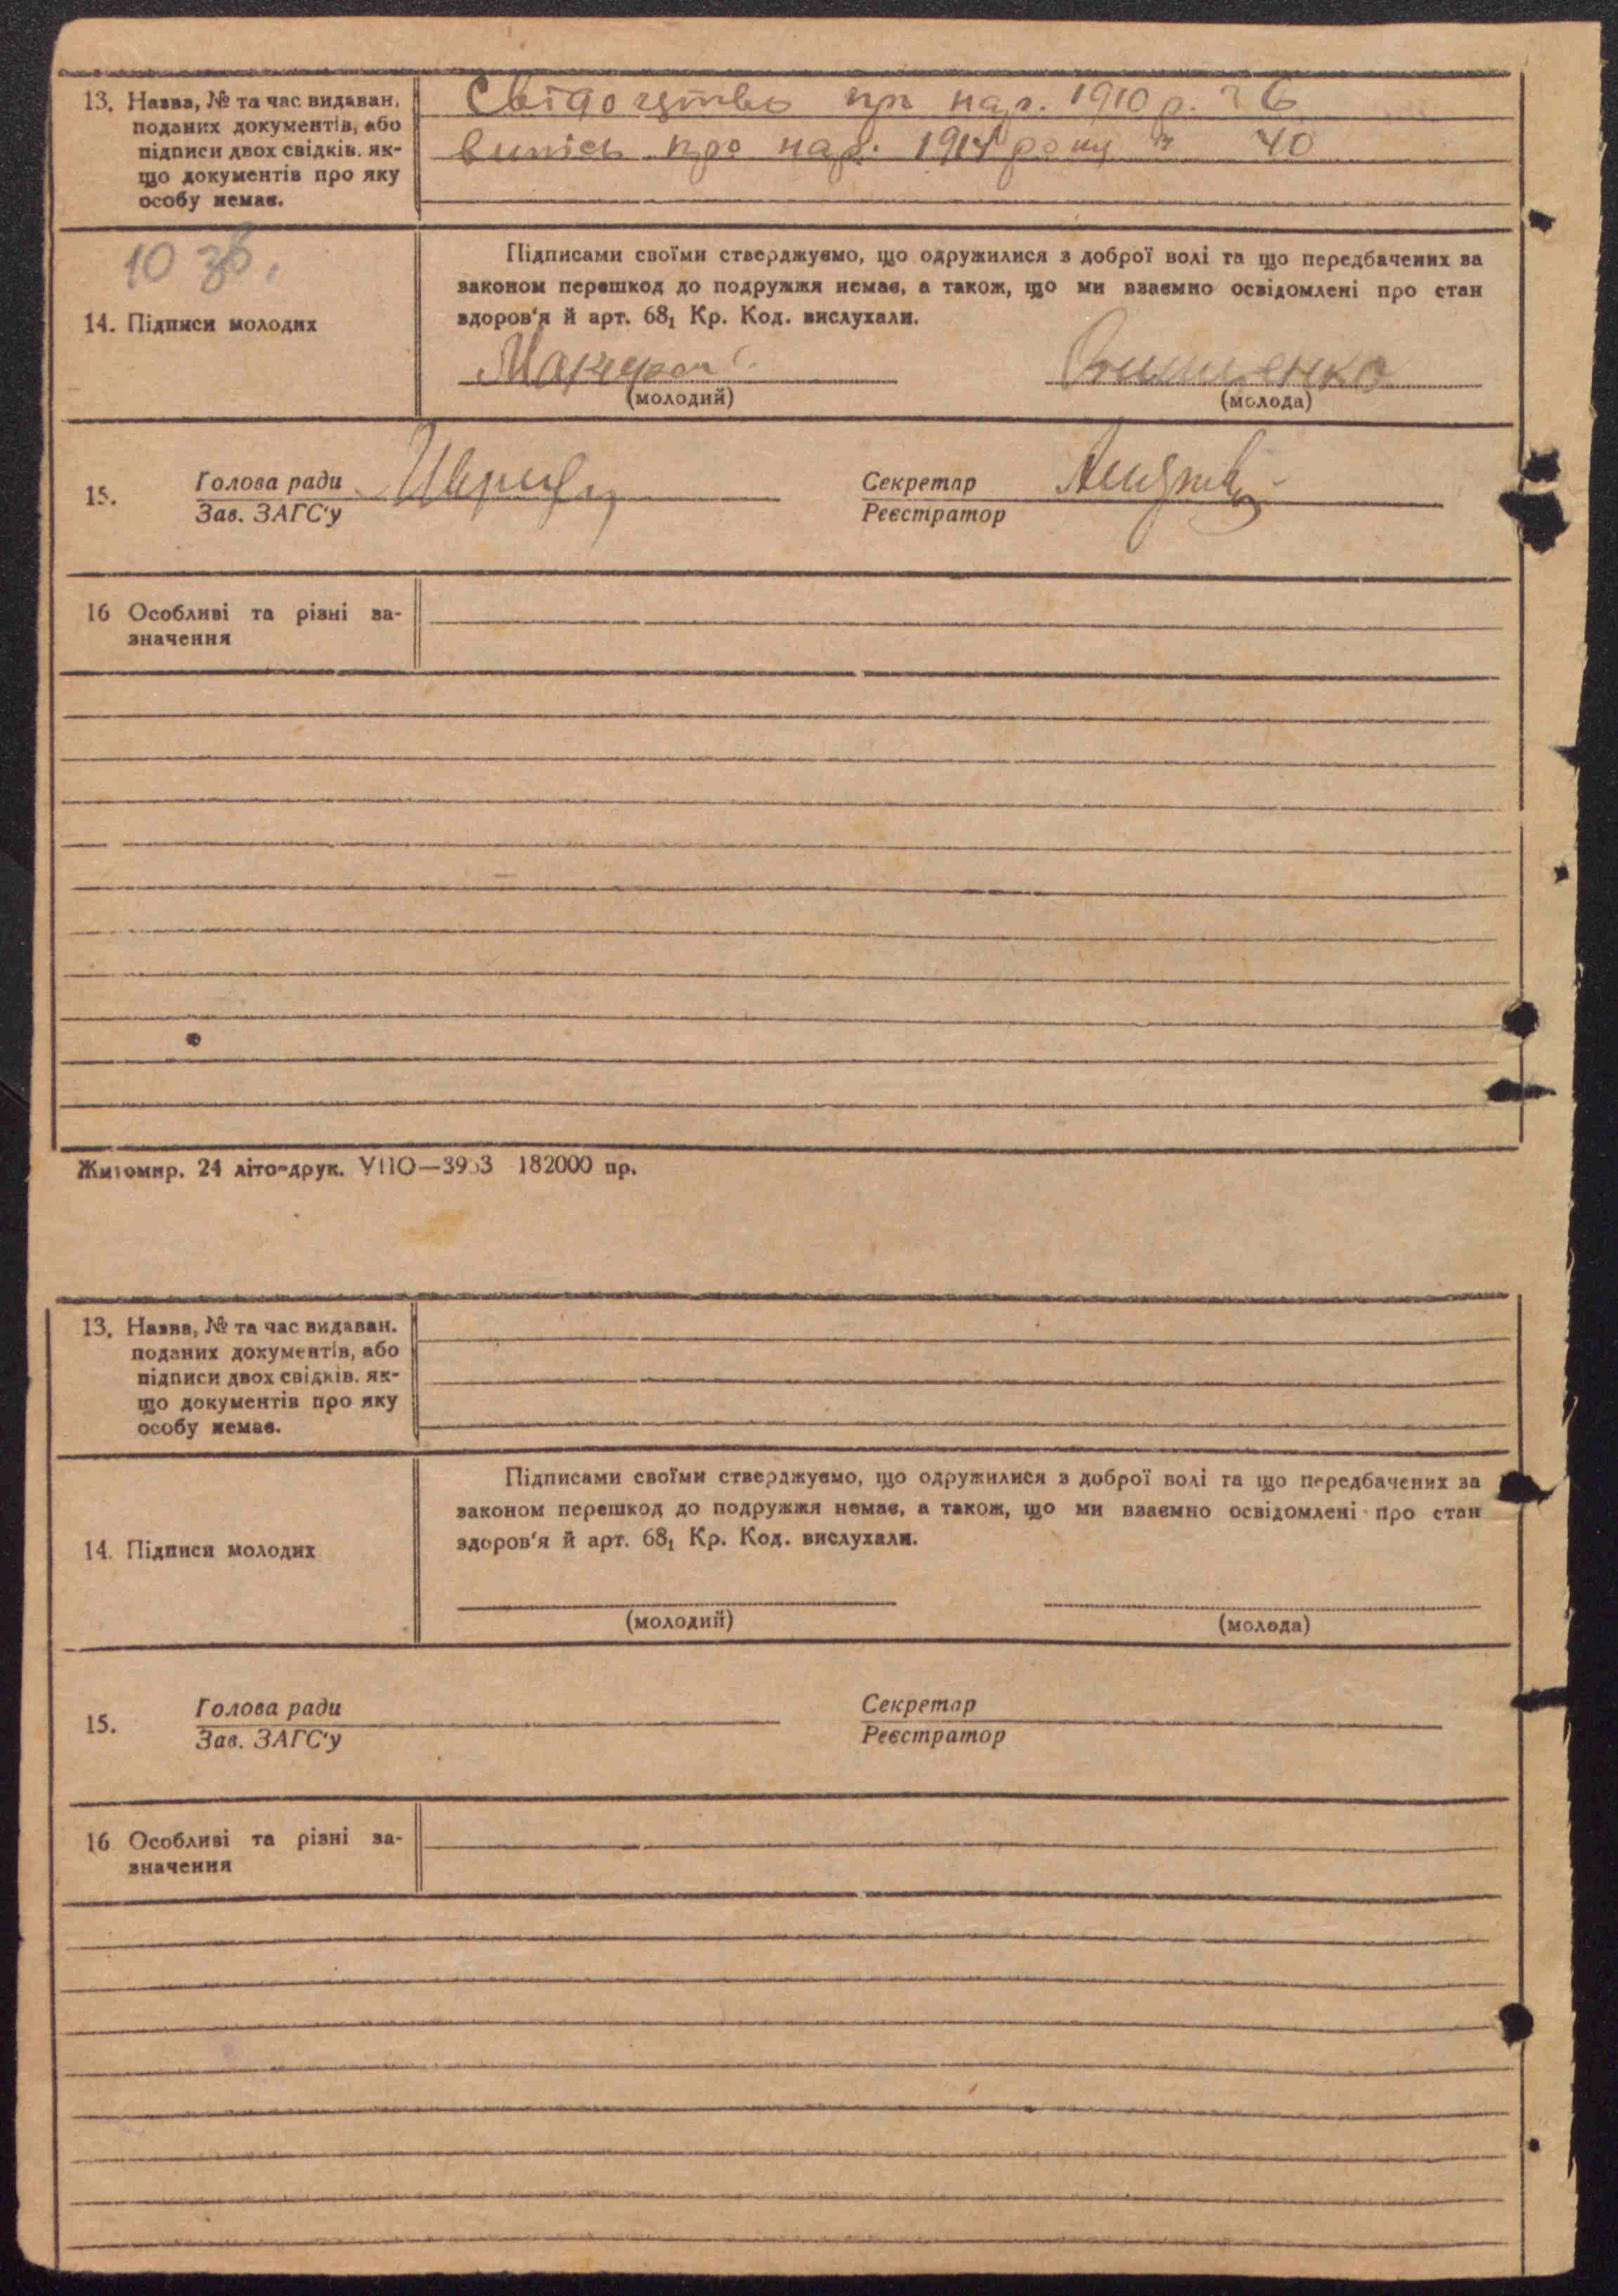 13. Назва, № та час видаван.
поданих документів, або
підписи двох свідків. як-
що документів про яку
особу немає.
Свідоцтво про нар. 1910 р. 26
випісь про нар. 1914 року 40
10 зв.
Підписами своїми стверджуємо, що одружилися з доброї волі та що передбачених за
законом перешкод до подружжя немає, а також, що ми взаємно освідомлені про стан
здоров'я й арт. 68₁ Кр. Код. вислухали.
14. Підписи молодих
(молодий) (молода)
15. Голова ради Секретар
Зав. ЗАГС'у Реєстратор
16 Особливі та різні за-
значення
Житомир. 24 літо-друк. УПО—3953 182000 пр.
13. Назва, № та час видаван.
поданих документів, або
підписи двох свідків. як-
що документів про яку
особу немає.
Підписами своїми стверджуємо, що одружилися з доброї волі та що передбачених за
законом перешкод до подружжя немає, а також, що ми взаємно освідомлені про стан
здоров'я й арт. 68₁ Кр. Код. вислухали.
14. Підписи молодих
(молодий) (молода)
15. Голова ради Секретар
Зав. ЗАГС'у Реєстратор
16 Особливі та різні за-
значення